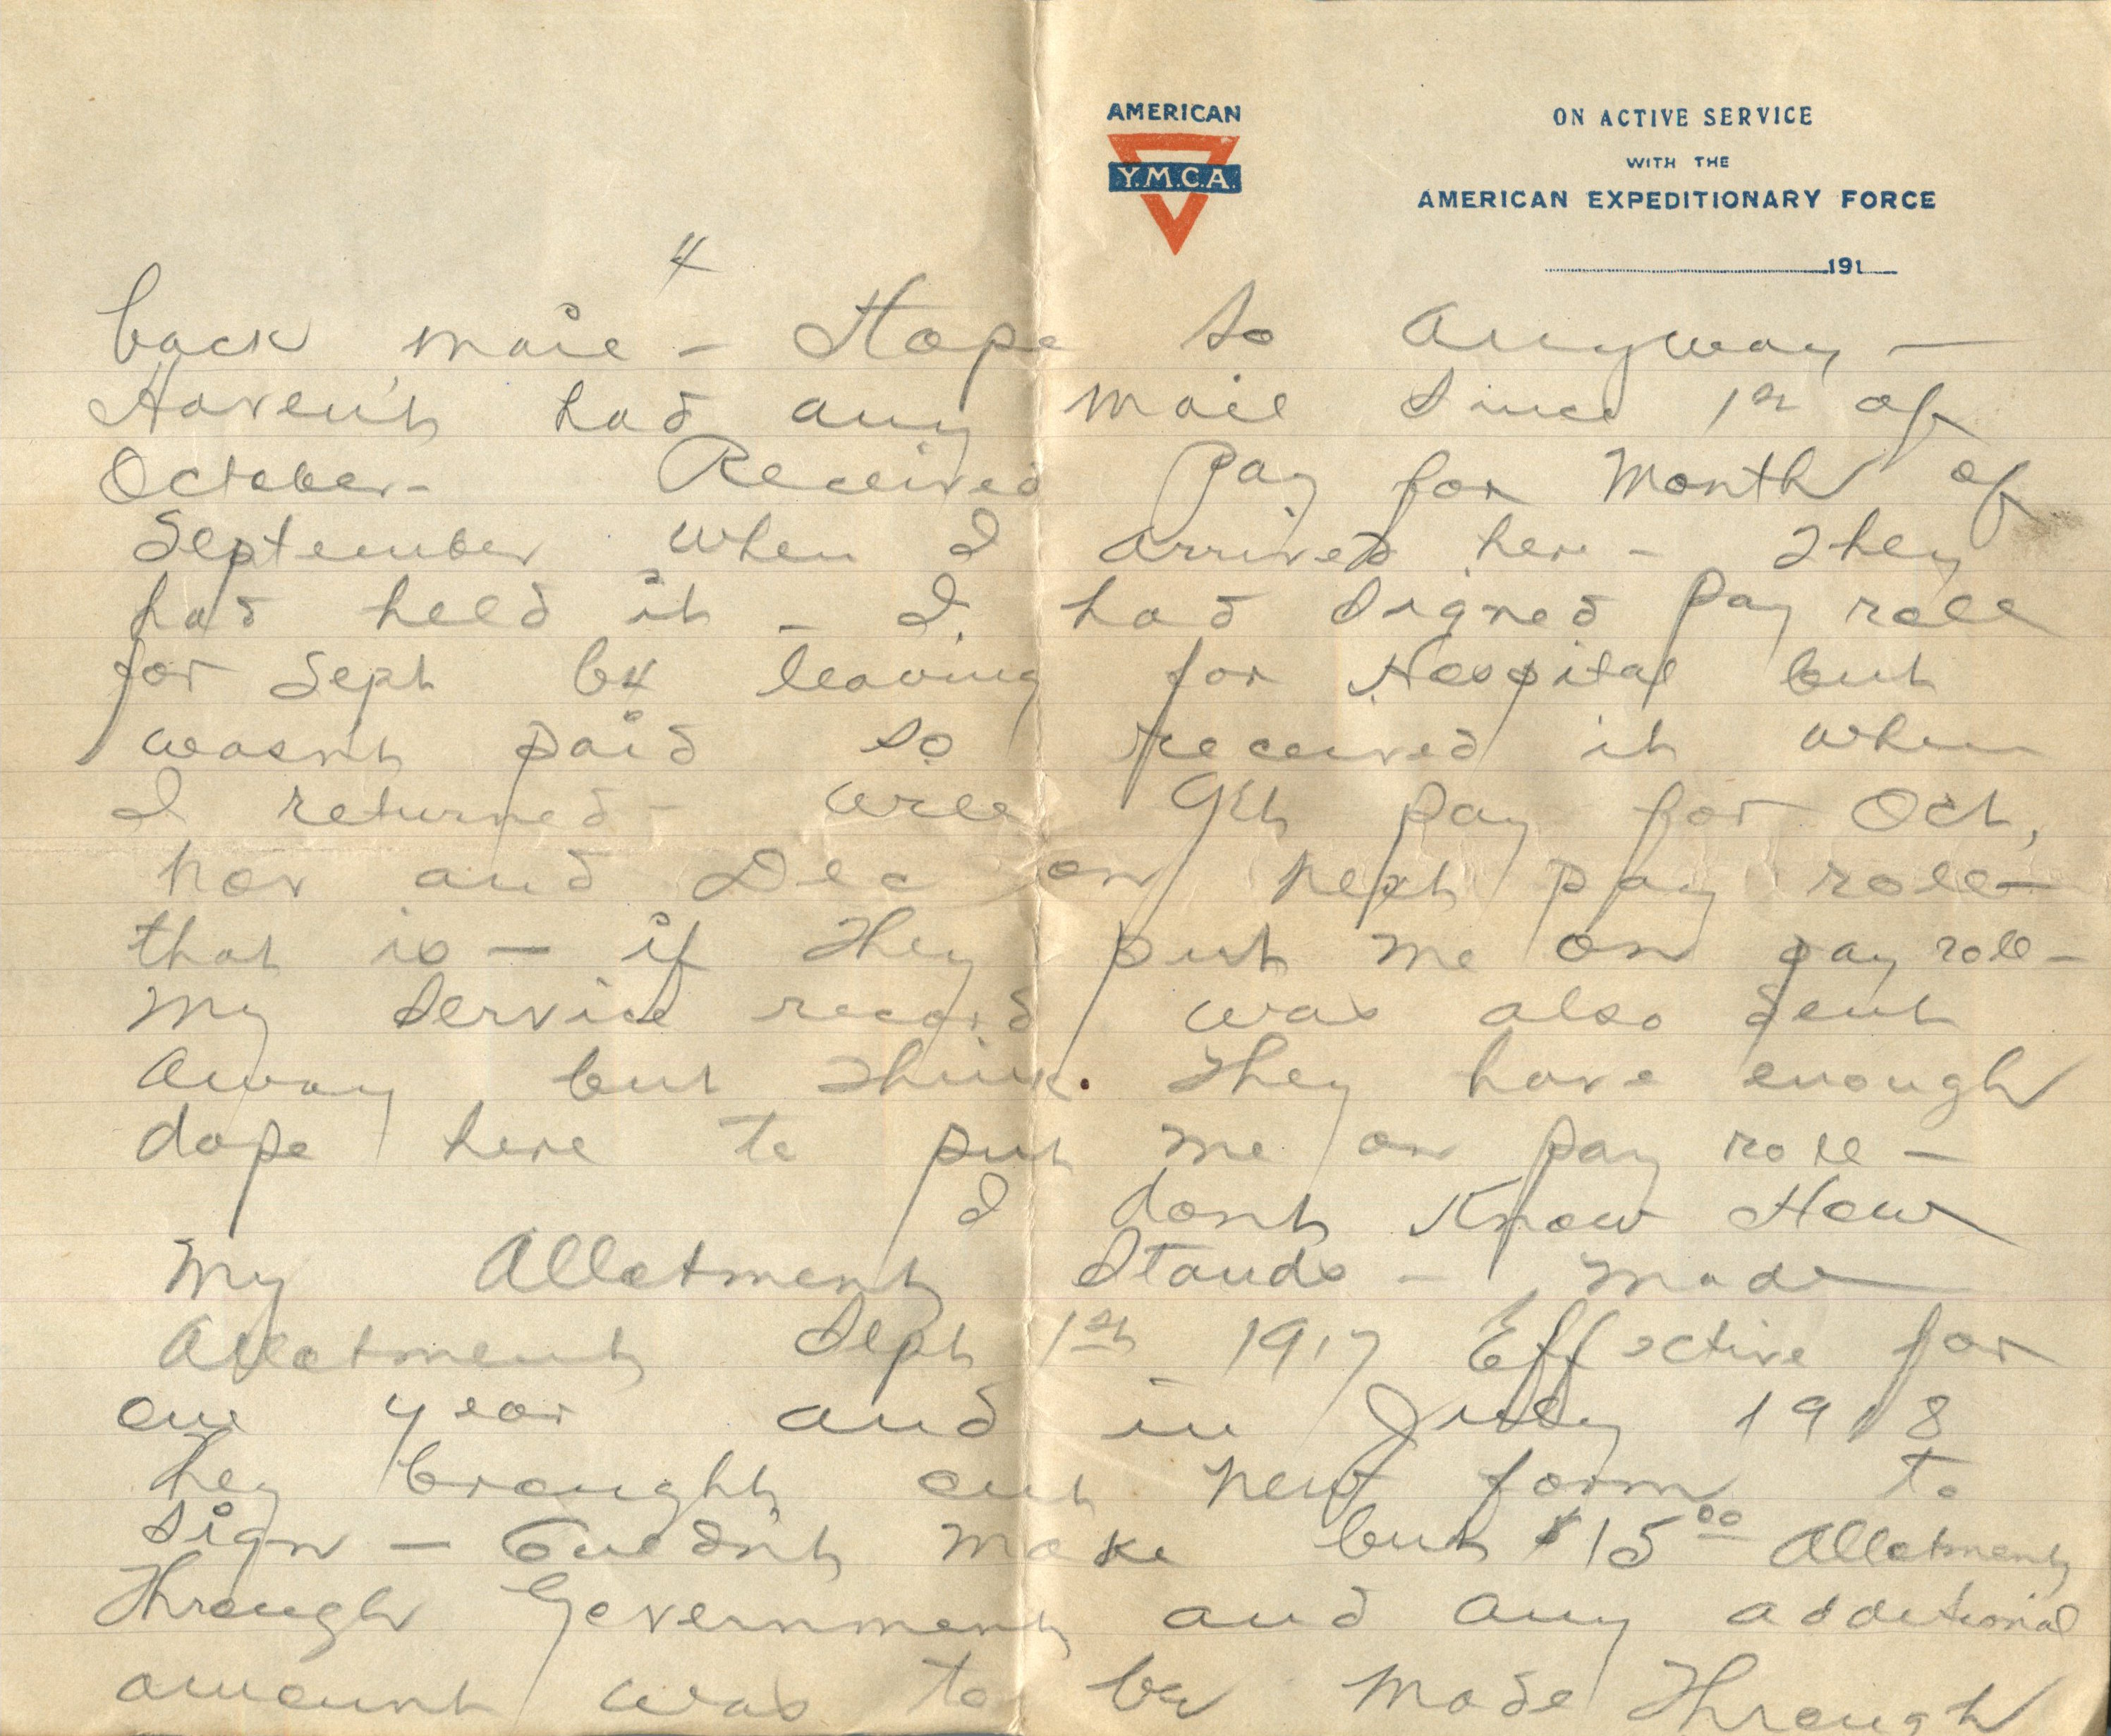 AMERICAN
Y.M.C.A.
ON ACTIVE SERVICE
WITH THE
AMERICAN EXPEDITIONARY FORCE
191
4
back mail - Hope so anyway -
Haven't had any mail since 1st of
October - Received Pay for Month of
September when I arrived here - They
had held it - I had signed pay roll
for Sept b4 leaving for Hospital but
wasn't paid so received it when
I returned - will get pay for Oct,
nov and Dec on next pay roll -
that is - if they put me on pay roll -
My service record was also sent
away but think they have enough
dope here to put me on pay roll -
I dont Know How
My Allotment stands - made
Allotment Sept 1st 1917 Effective for
one year and in July 1918
they brought out new form to
sign - Couldn't make but $15.00 Allotment
Through Government and any additional
amount was to be made Through